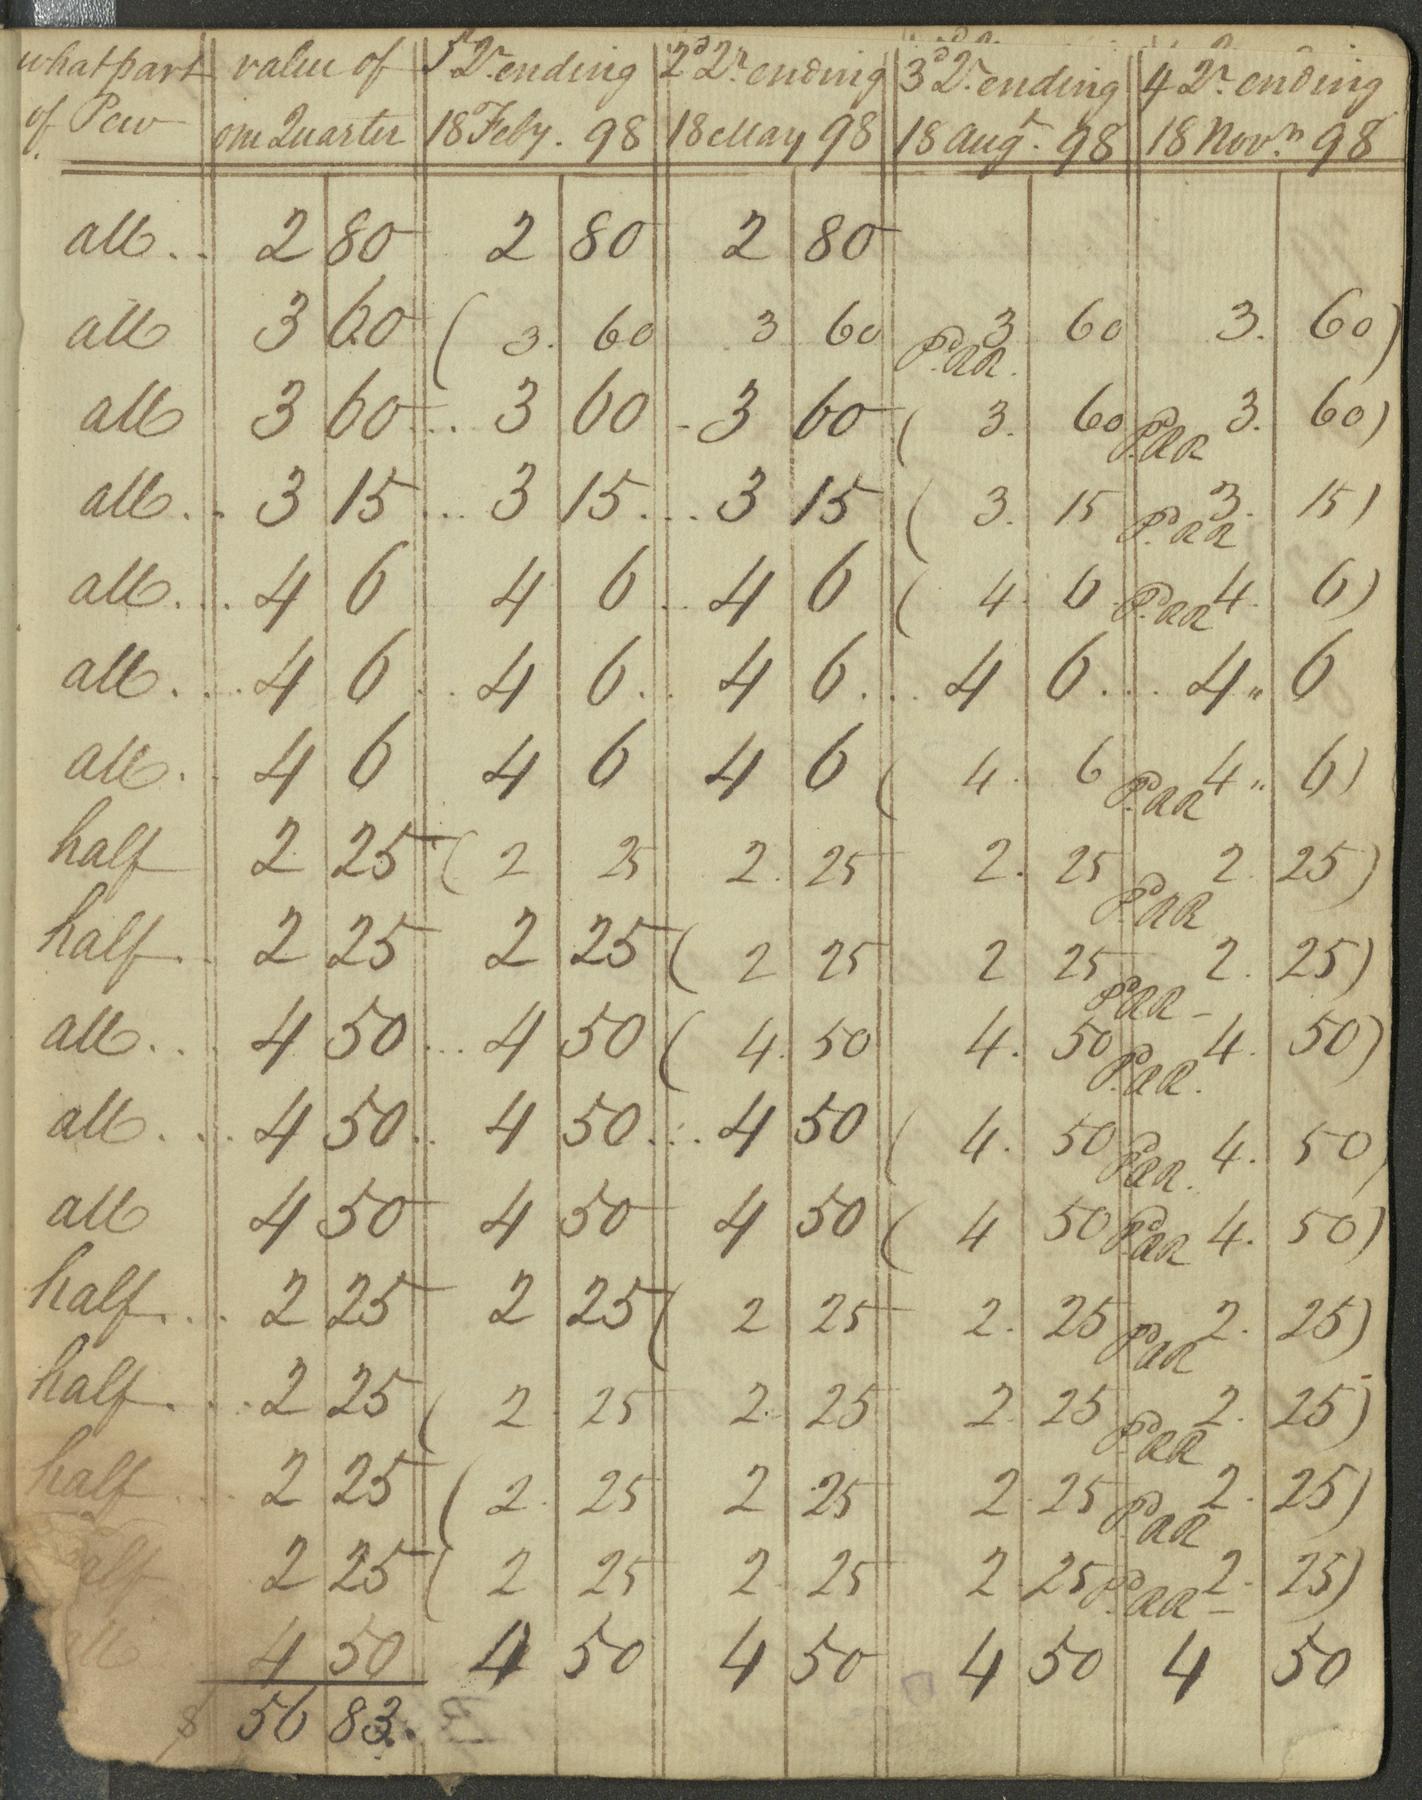 what part value of 1st Qr ending 2d Qr ending 3d Qr ending 4 Qr ending
of Pew one Quarter 18 Feby. 98 18 May 98 18 Augt. 98 18 Novr. 98
all .. 2 80 2 80 2 80
all 3 60 ( 3. 60 3 60 Pd. RR. 3 60 3. 60 )
all 3 60 ... 3 60 - 3 60 ( 3. 60 Pd. RR 3. 60 )
all .. 3 15 ... 3 15 .... 3 15 ( 3. 15 Pd. RR 3. 15 )
all ... 4 6 4 6 ... 4 6 ( 4. 6 Pd. RR 4. 6 )
all .... 4 6 ... 4 6 ... 4 6 .... 4 6 .... 4 " 6
all .. 4 6 4 6 4 6 ( 4. 6 Pd. RR 4 " 6 )
half 2 25 ( 2 25 2. 25 2. 25 Pd. RR 2. 25 )
half .. 2 25 2 25 ( 2 25 2 25 Pd. RR - 2. 25 )
all ... 4 50 ... 4 50 ( 4. 50 4. 50 Pd. RR. 4. 50 )
all .... 4 50 .. 4 50 .... 4 50 ( 4. 50 Pd. RR. 4. 50 )
all 4 50 4 50 4 50 ( 4 50 Pd. RR 4. 50 )
half ... 2 25 2 25 ( 2 25 2. 25 Pd. RR 2. 25 )
half ... 2 25 ( 2 25 2. 25 2. 25 Pd. RR 2. 25 )
half ... 2 25 ( 2. 25 2 25 2. 25 Pd. RR 2. 25 )
half 2 25 ( 2 25 2. 25 2. 25 Pd. RR - 2. 25 )
all 4 50 4 50 4 50 4 50 4 50
$ 56 83.